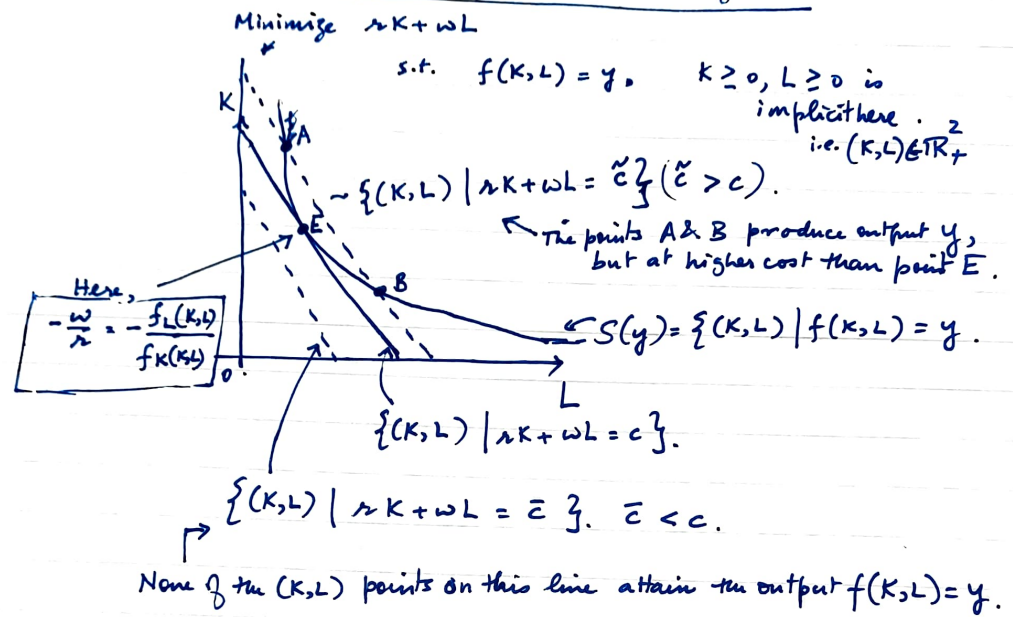 Minimize rK + wL
s.t. f(K,L) = y. K ≥ 0, L ≥ 0 is
implicit here.
i.e. (K,L) ∈ ℝ²₊
K
A
~ {(K,L) | rK + wL = c̃} (c̃ > c).
E
The points A & B produce output y,
but at higher cost than point E.
B
Here,
-w/r = - f_L(K,L)/f_K(K,L)
S(y) = {(K,L) | f(K,L) = y.
0
L
{(K,L) | rK + wL = c}.
{(K,L) | rK + wL = c̄ }. c̄ < c.
None of the (K,L) points on this line attain the output f(K,L) = y.